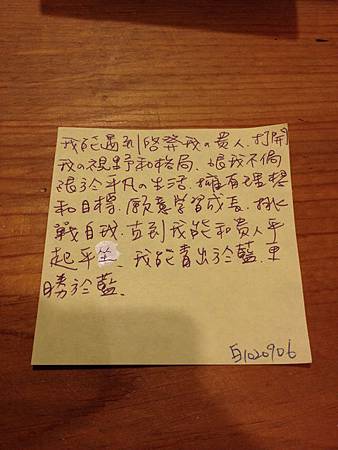 我能遇到啓發我の貴人.打開
我の視野和格局.讓我不侷
限於平凡の生活.擁有理想
和目標.願意學習成長.挑
戰自我.直到我能和貴人平
起平坐.我能青出於藍.更
勝於藍.
1020906